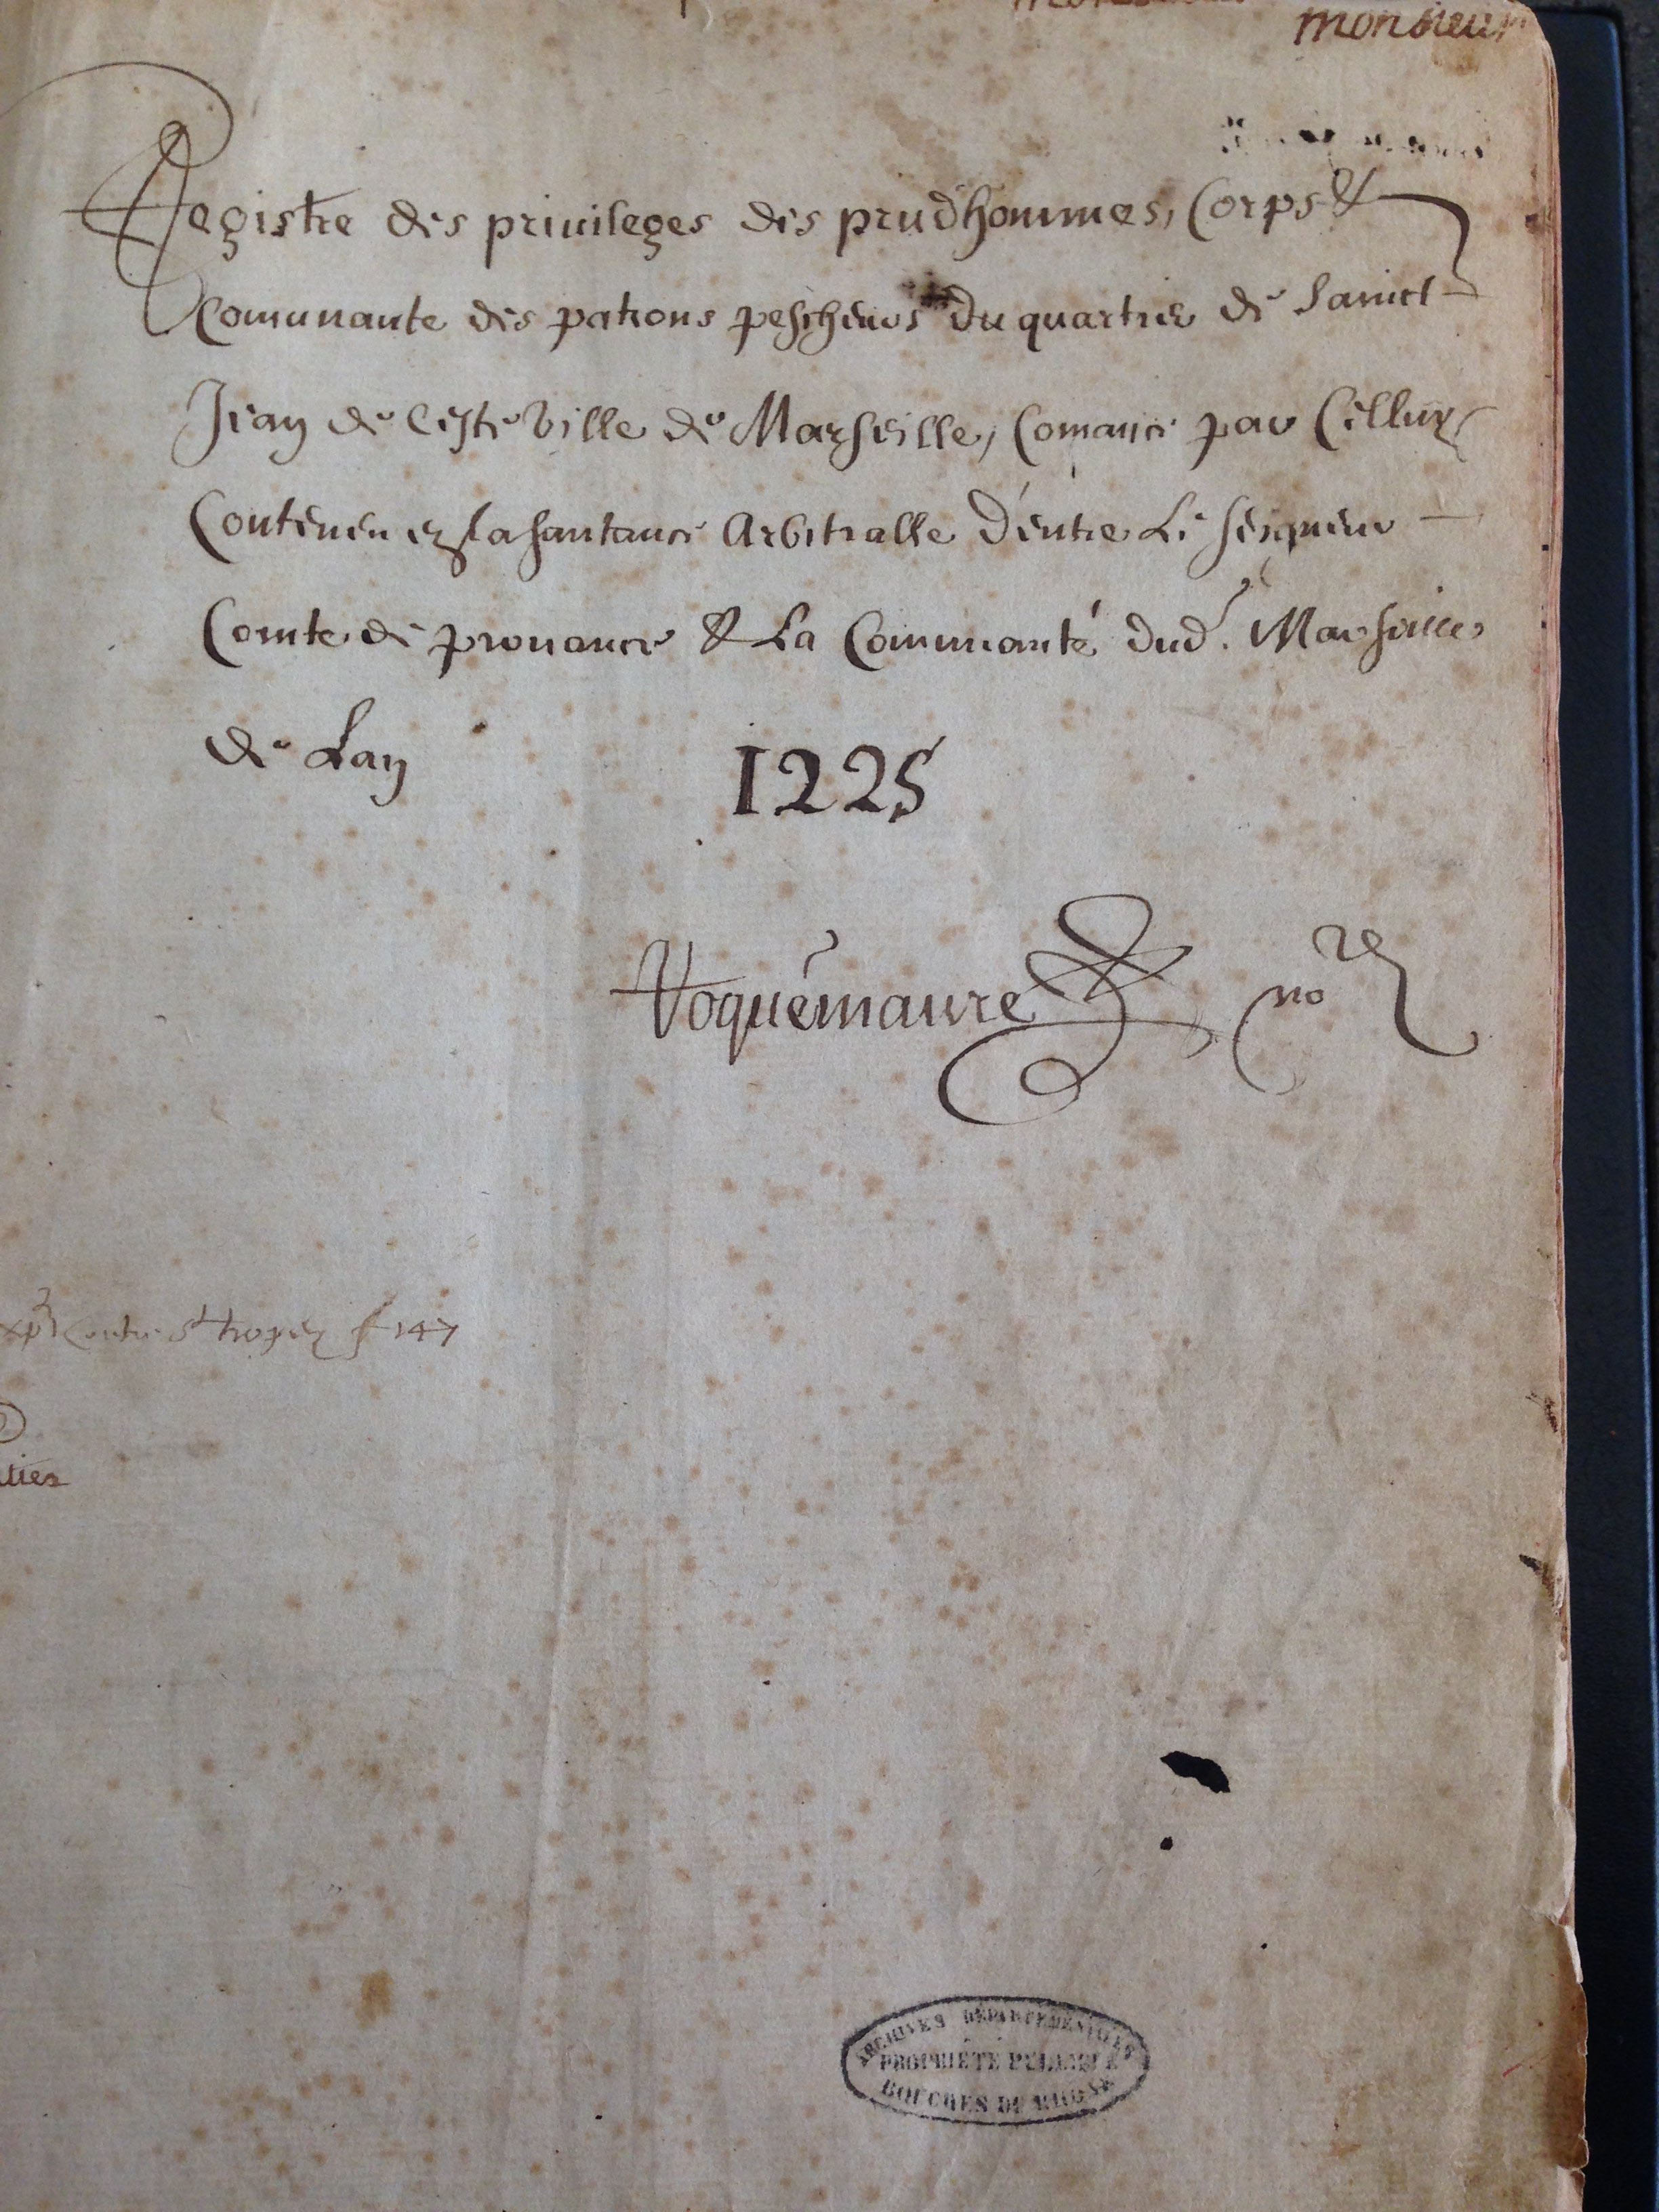 monsieur
Registre des priuileges des prudhommes, Corps &
Comunante des patrons pescheurs du quartier de Sainct
Jean de Ceste Ville de Marseille, Comance par Celluy
Contenen en la santance Arbitralle d'entre Le seigneur
Comte de prouance & La Communanté dud. Marseille
de Lan 1225
Roquemaure no re
contre St tropez f 147
ARCHIVES DÉPARTEMENTALES
PROPRIÉTÉ PUBLIQUE
BOUCHES DU RHONE